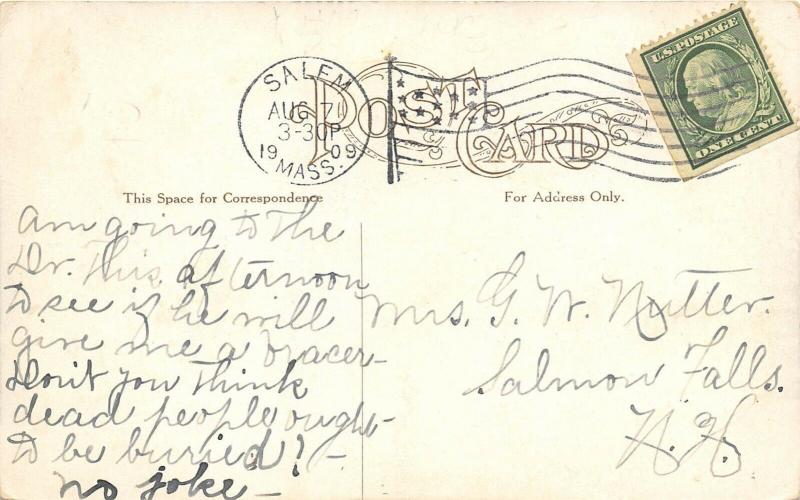 SALEM
AUG 7
3-30P
1909
MASS.
POST CARD
U.S. POSTAGE
ONE CENT
This Space for Correspondence
For Address Only.
Am going to the
Dr. this afternoon
to see if he will
give me a bracer–
Don't you think
dead people ought–
to be buried? –
no joke –
Mrs. G. W. Nutter.
Salmon Falls.
N. H.